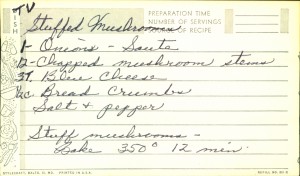 TV
DISH
Stuffed Mushrooms
PREPARATION TIME
NUMBER OF SERVINGS
OF RECIPE
1- Onions - Saute
12- Chopped mushroom stems
3T. Blue Cheese
1/2c. Bread Crumbs
Salt & pepper
Stuff mushrooms -
Bake 350° 12 min.
PRINTED IN U.S.A.